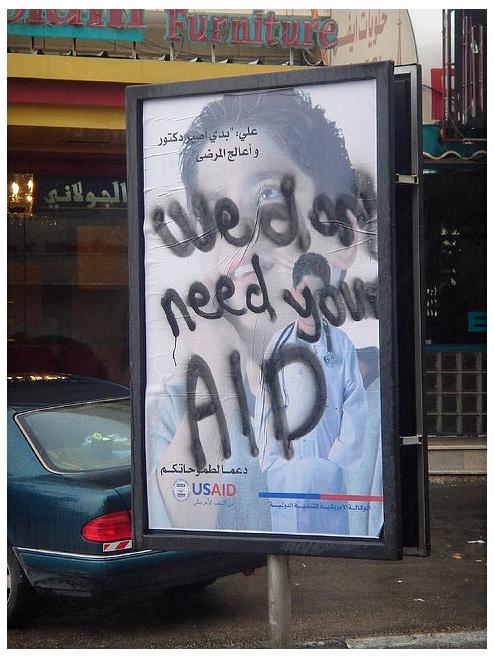 Furniture
حلويات
الجولاني
علي: "بدي أصير دكتور
و أعالج المرضى
we don't
need your
AID
دعما لطموحاتكم
USAID
من الشعب الأمريكي
الوكالة الأمريكية للتنمية الدولية